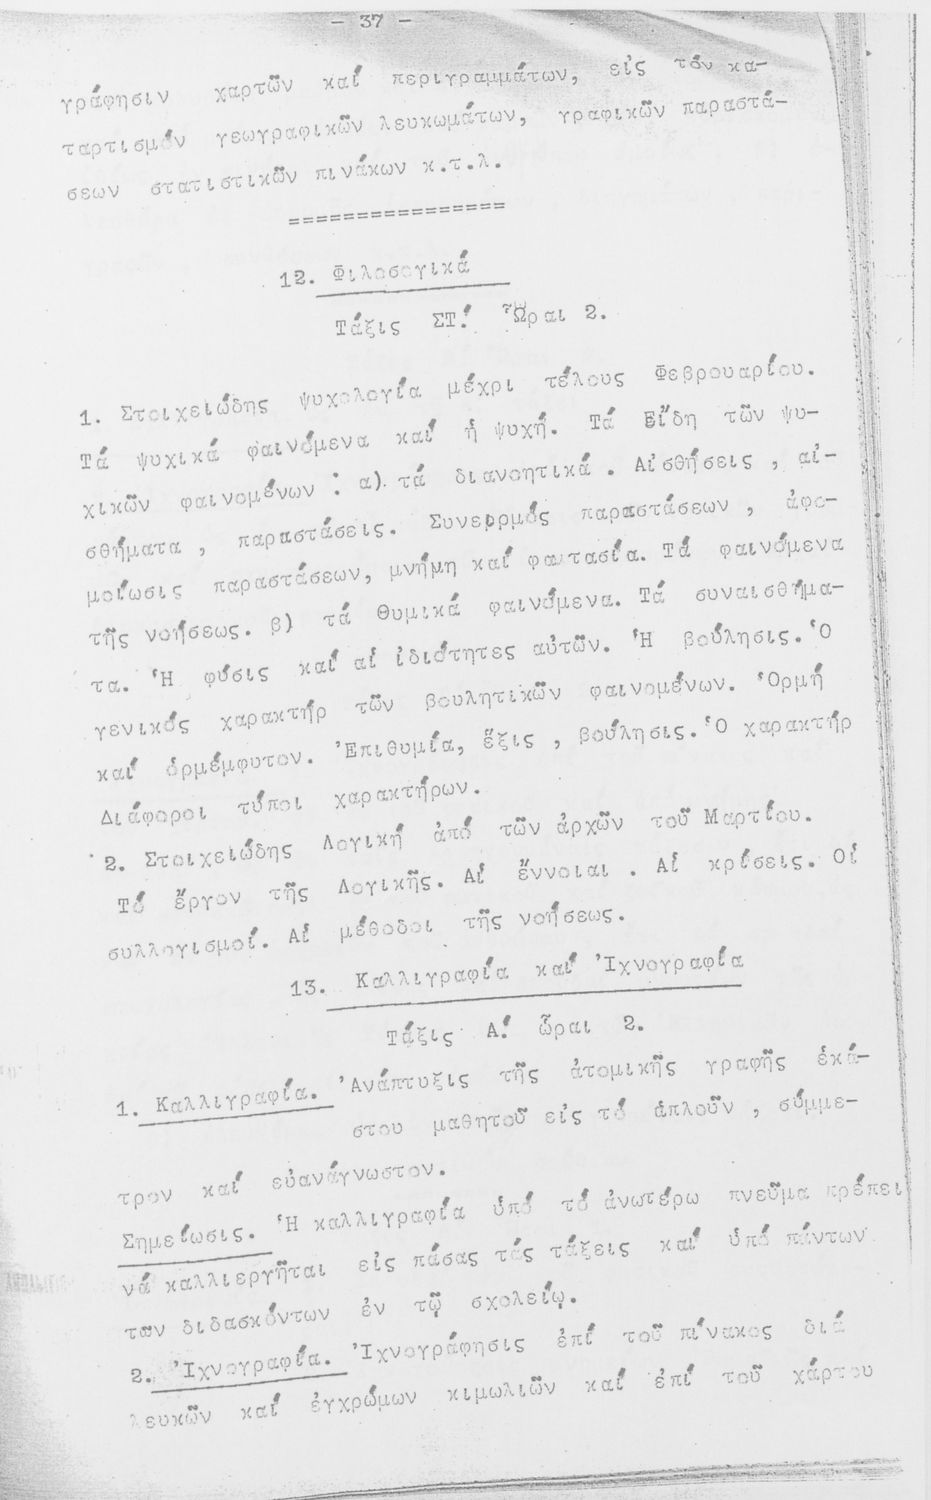 - 37 -
γράφησιν χαρτῶν καί περιγραμμάτων, εἰς τόν κα-
ταρτισμόν γεωγραφικῶν λευκωμάτων, γραφικῶν παραστά-
σεων στατιστικῶν πινάκων κ.τ.λ.
=================
12. Φιλοσογικά
Τάξις ΣΤ! Ὧραι 2.
1. Στοιχειώδης ψυχολογία μέχρι τέλους Φεβρουαρίου.
Τά ψυχικά φαινόμενα καί ἡ ψυχή. Τά Εἴδη τῶν ψυ-
χικῶν φαινομένων : α). τά διανοητικά. Αἰσθήσεις, αἰ-
σθήματα, παραστάσεις. Συνειρμός παραστάσεων, ἀφο-
μοίωσις παραστάσεων, μνήμη καί φαντασία. Τά φαινόμενα
τῆς νοήσεως. β) τά θυμικά φαινόμενα. Τά συναισθήμα-
τα. Ἡ φύσις καί αἱ ἰδιότητες αὐτῶν. Ἡ βούλησις. Ὁ
γενικός χαρακτήρ τῶν βουλητικῶν φαινομένων. Ὁρμή
καί ὁρμέμφυτον. Ἐπιθυμία, ἕξις, βούλησις. Ὁ χαρακτήρ
Διάφοροι τύποι χαρακτήρων.
2. Στοιχειώδης Λογική ἀπό τῶν ἀρχῶν τοῦ Μαρτίου.
Τό ἔργον τῆς Λογικῆς. Αἱ ἔννοιαι. Αἱ κρίσεις. Οἱ
συλλογισμοί. Αἱ μέθοδοι τῆς νοήσεως.
13. Καλλιγραφία καί Ἰχνογραφία
Τάξις Α! ὧραι 2.
1. Καλλιγραφία. Ἀνάπτυξις τῆς ἀτομικῆς γραφῆς ἑκά-
στου μαθητοῦ εἰς τό ἁπλοῦν, σύμμε-
τρον καί εὐανάγνωστον.
Σημείωσις. Ἡ καλλιγραφία ὑπό τό ἀνωτέρω πνεῦμα πρέπει
νά καλλιεργῆται εἰς πάσας τάς τάξεις καί ὑπό πάντων
των διδασκόντων ἐν τῷ σχολείῳ.
2. Ἰχνογραφία. Ἰχνογράφησις ἐπί τοῦ πίνακος διά
λευκῶν καί ἐγχρώμων κιμωλιῶν καί ἐπί τοῦ χάρτου